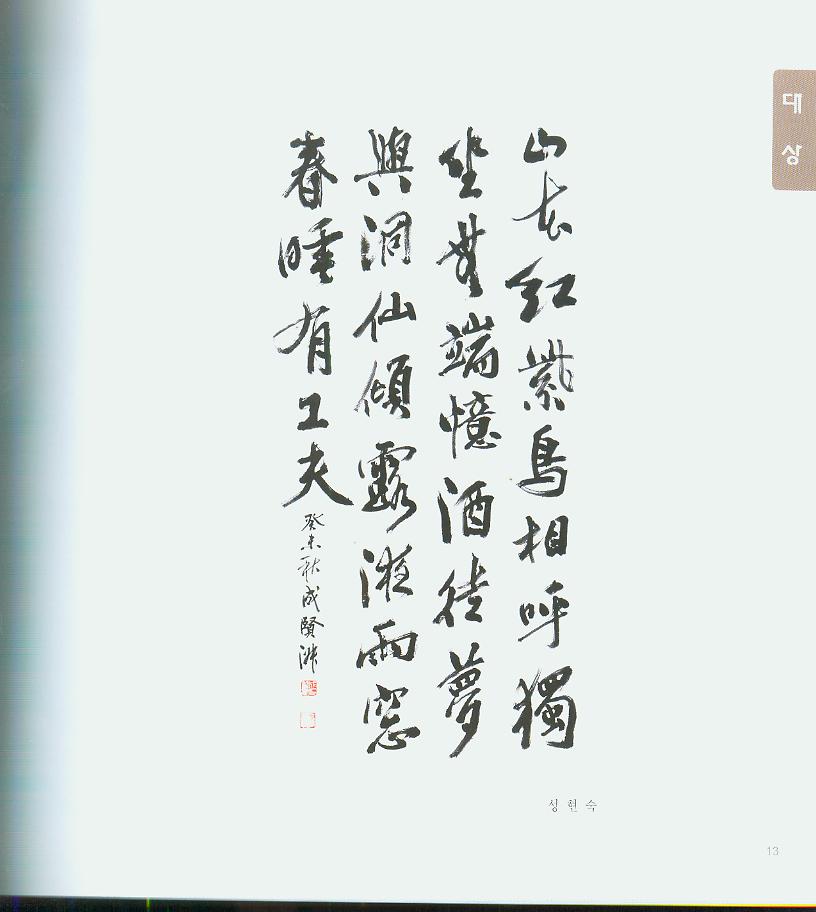 대상
山紅紫鳥相呼獨
坐無端憶酒徒夢
與洞仙傾露液雨窓
春睡有工夫 癸未秋成賢淑
성현숙
13